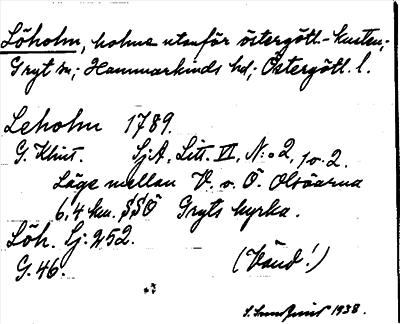 Löholm, holme utanför östergötl.-kusten;
Gryt sn; Hammarkinds hd; Östergötl. l.
Leholm 1789.
G. Klint. SjA, Litt. VI, N:o 2, 1 o. 2.
Läge mellan V. o. Ö. Olsöarna
6,4 km. SSÖ Gryts kyrka.
Löh. Sj: 252.
G. 46. (Vänd!)
1938.